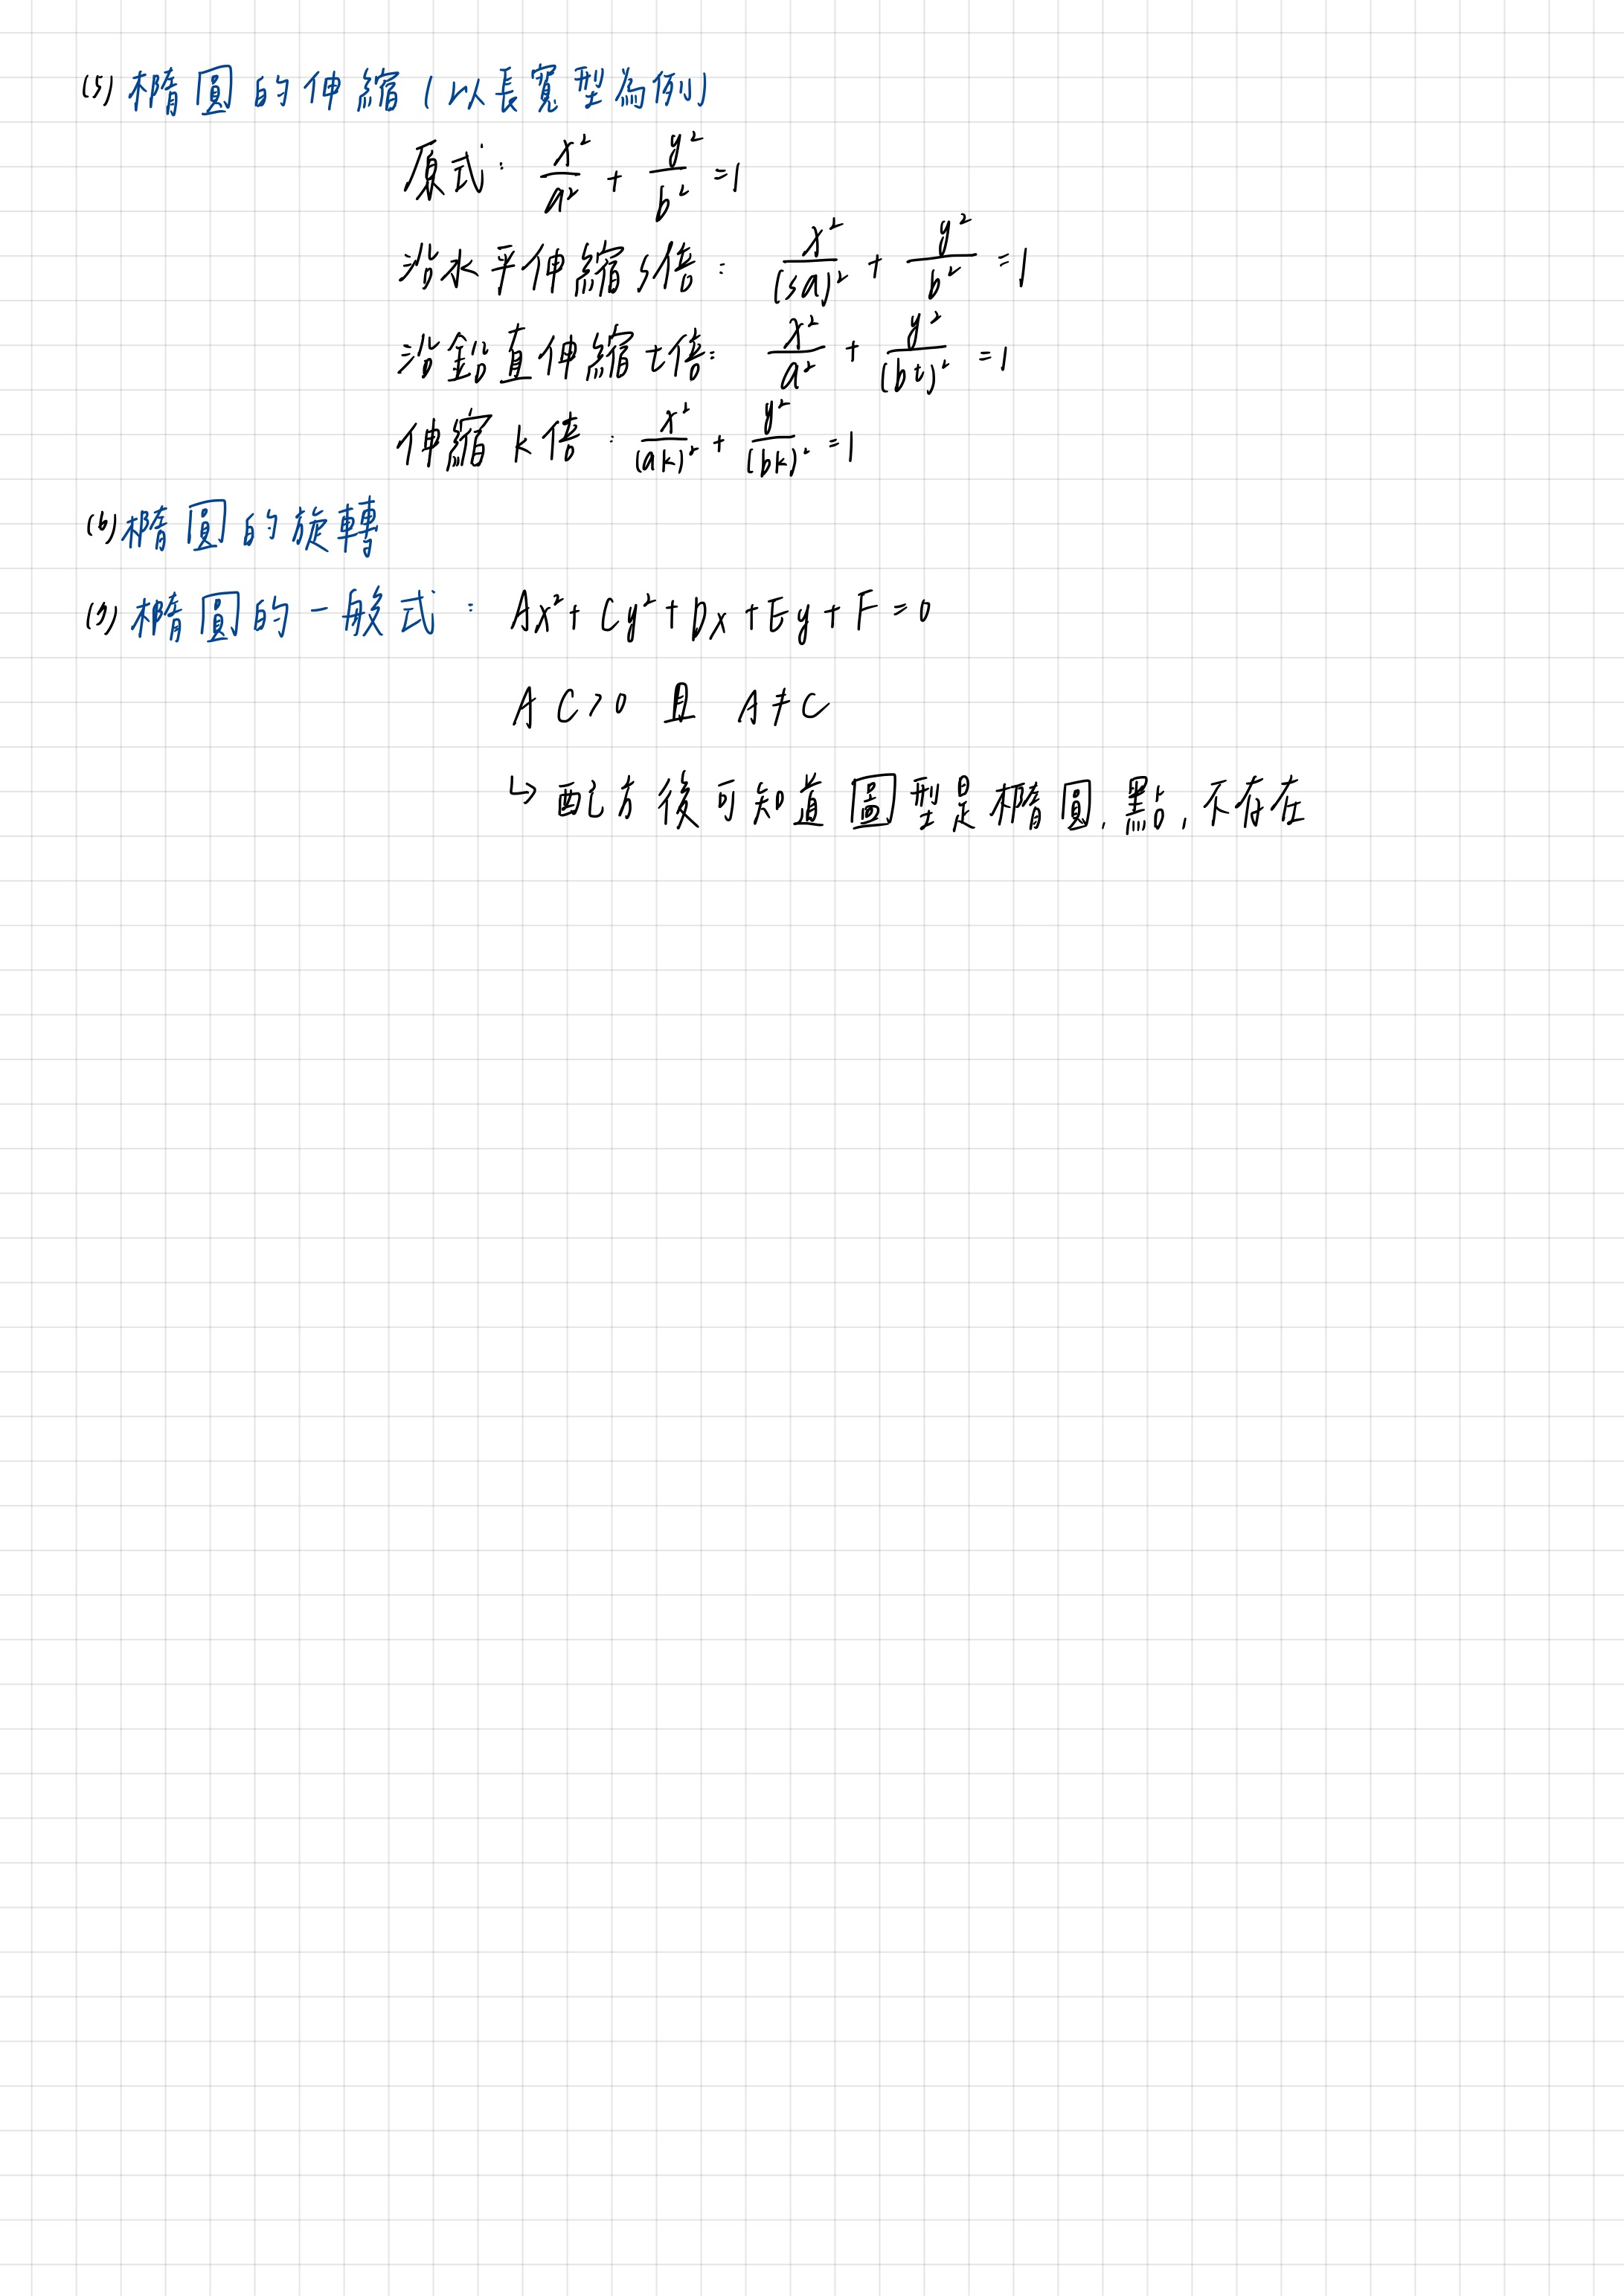 (5) 橢圓的伸縮(以長寬型為例)
原式: x²/a² + y²/b² = 1
沿水平伸縮s倍: x²/(sa)² + y²/b² = 1
沿鉛直伸縮t倍: x²/a² + y²/(bt)² = 1
伸縮k倍: x²/(ak)² + y²/(bk)² = 1
(6) 橢圓的旋轉
(7) 橢圓的一般式: Ax² + Cy² + Dx + Ey + F = 0
AC > 0 且 A ≠ C
↳ 配方後可知道圖型是橢圓, 點, 不存在